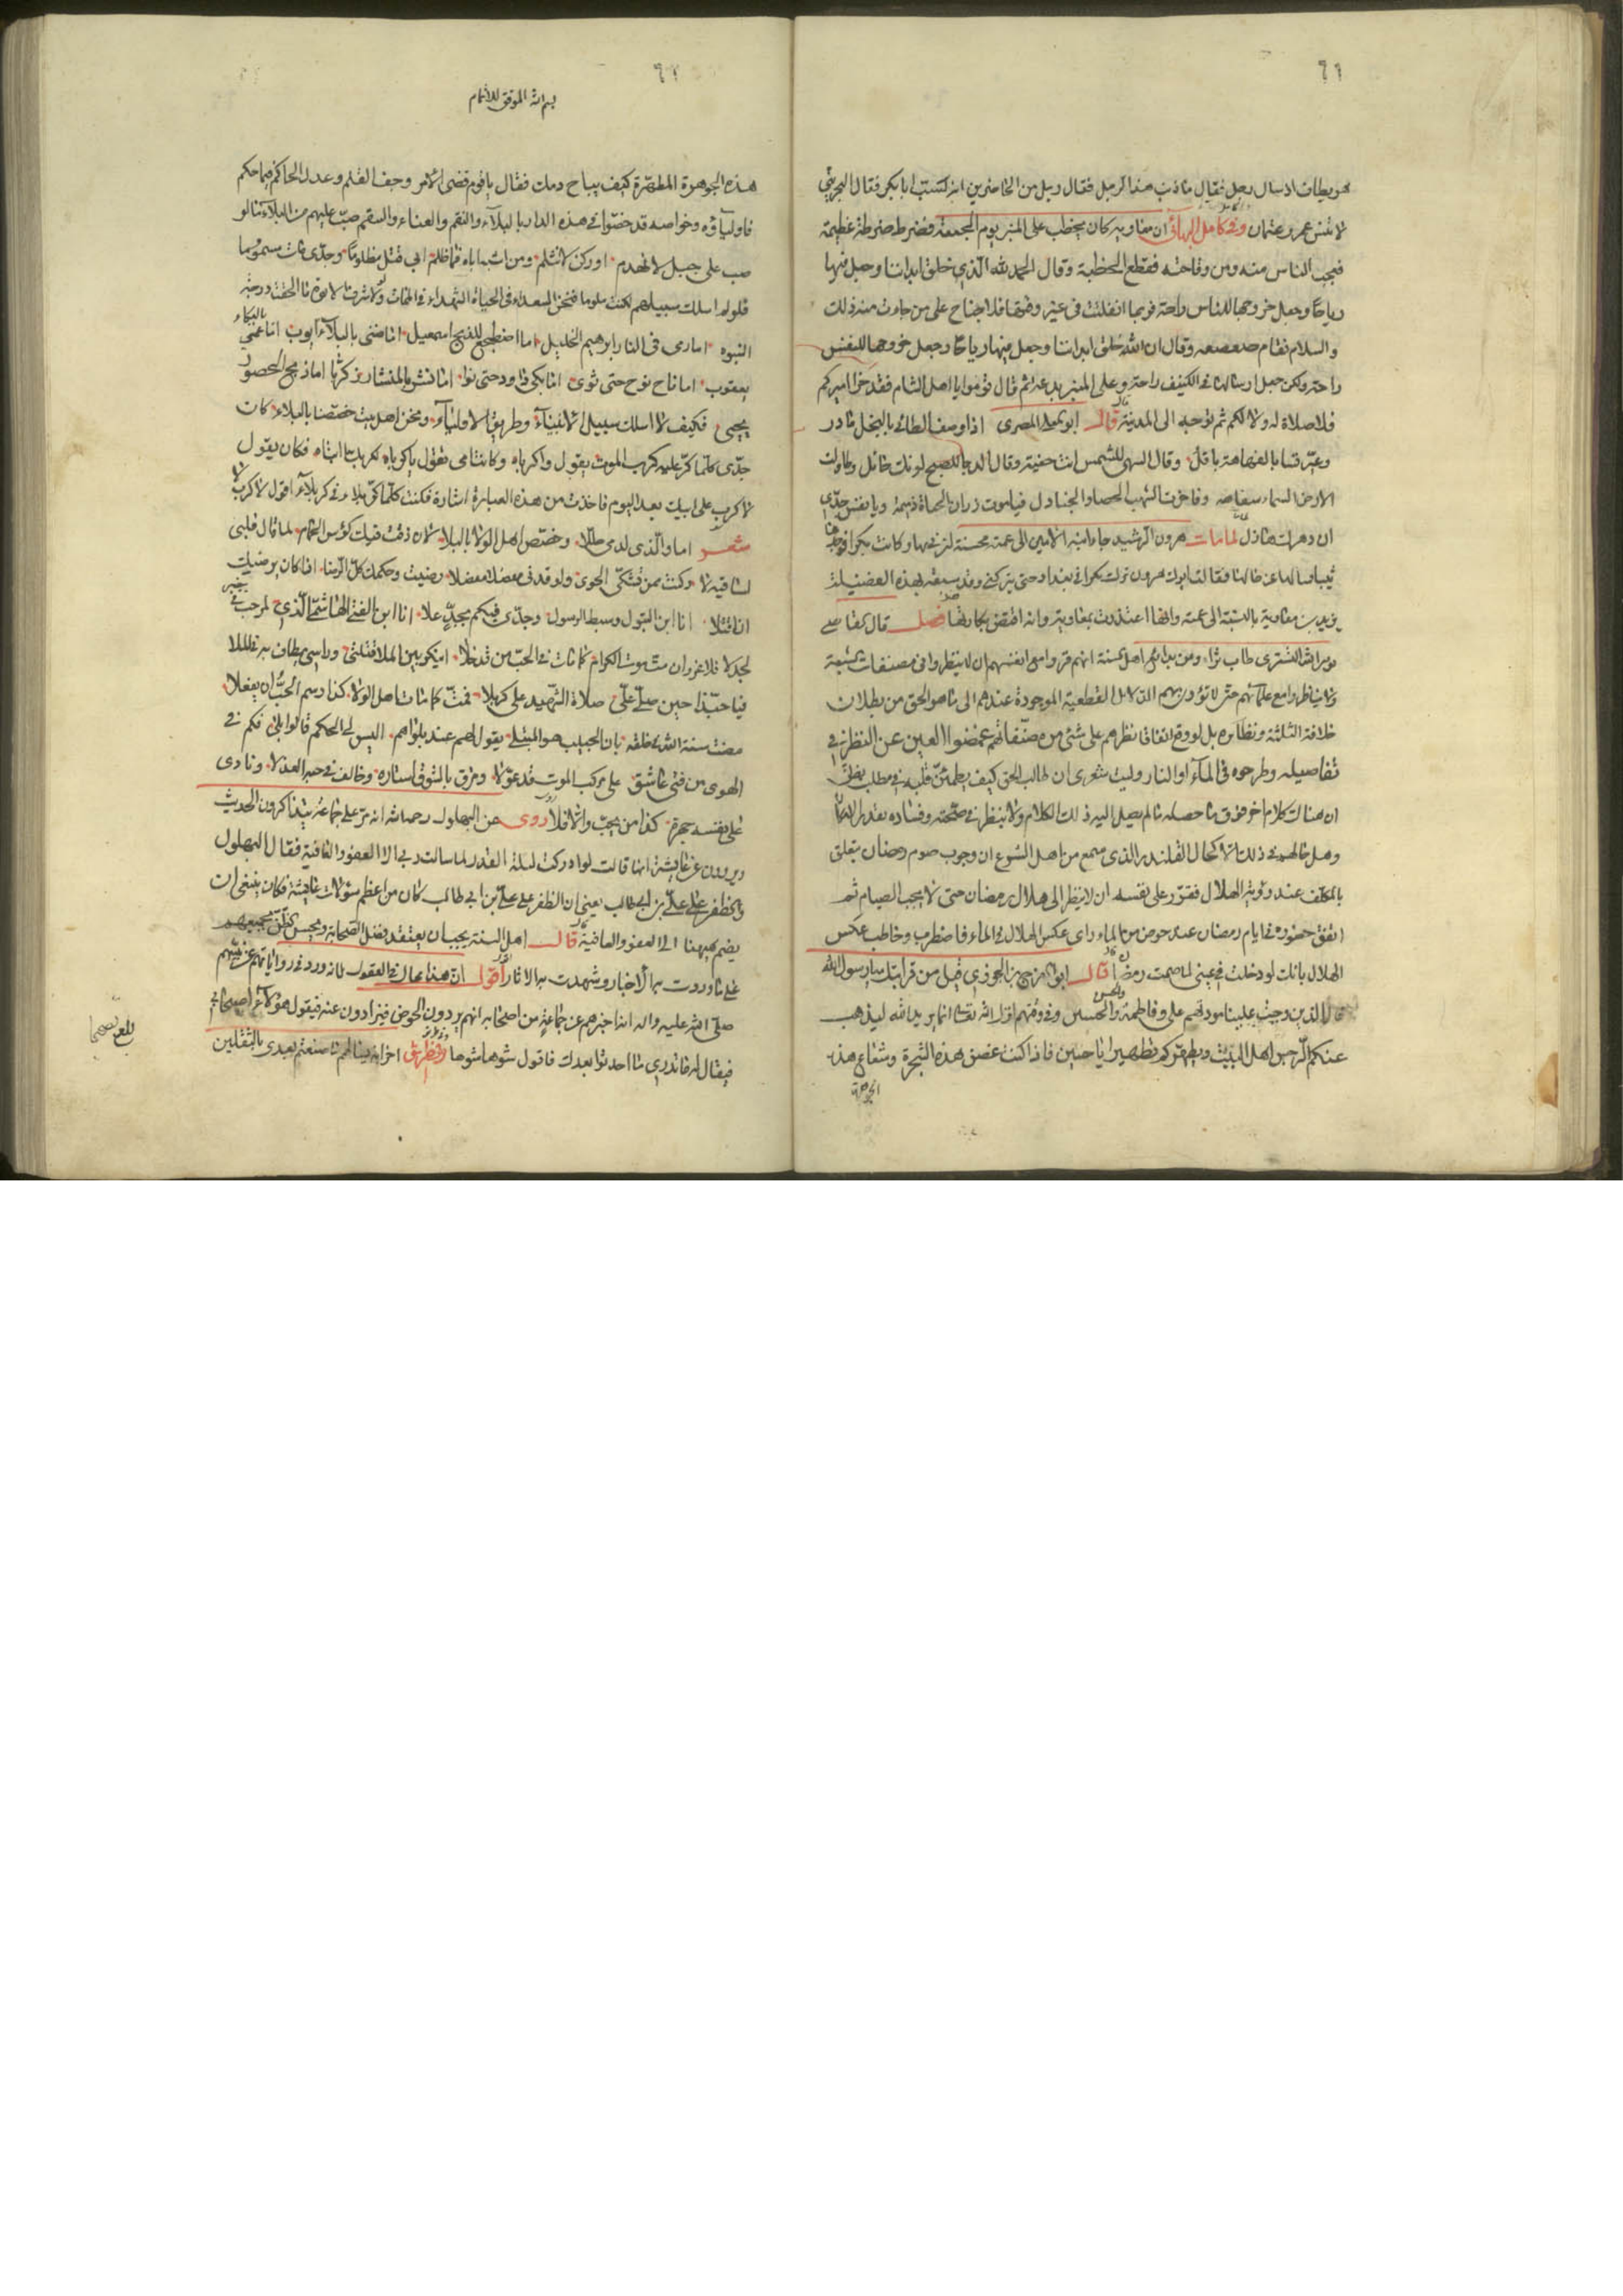 ٦٦
هو يطاف اذ سال رجل فقال ما ذنب هذا الرجل فقال رجل من الحاضرين انه سب ابا بكر فقال البحريني
لا تنس عمر وعثمان وفي كامل البهائي ان معاوية كان يخطب على المنبر يوم الجمعة فضرط ضرطة عظيمة
فعجب الناس منه ومن وقاحته فقطع الخطبة وقال الحمد لله الذي خلق ابداننا وجعل فيها
رياحا وجعل خروجها للناس راحة فربما انفلتت في غير وقتها فلا جناح على من جاءت منه ذلك
والسلام فقام صعصعه وقال ان الله خلق ابداننا وجعل فيها رياحا وجعل خروجها للنفس
راحة ولكن جعل ارسالها في الكنيف راحة وعلى المنبر بدعة ثم قال قوموا يا اهل الشام فقد خرا اميركم
فلا صلاة له ولا لكم ثم توجه الى المدينة قال ابو العلا المعري اذا وصف الطائي بالبخل مادر
وعير قسا بالفهاهة باقل وقال السهى للشمس انت خفية وقال الدجا للصبح لونك حائل وطاولت
الارض السماء سفاهة وفاخرت الشهب الحصا والجنادل فيا موت زر ان الحياة ذميمة ويا نفس جدي
ان دهرك هازل لما مات هرون الرشيد جاء ابنه الامين الى عمته محسنة لتعزيها وكانت بكرا فوجدها
ثيبا وسالها عن حالها فقالت ابوك هرون ترك بكرا في بغداد حتى يتركني وقد سبقه بهذه الفضيلة
يزيد بن معاوية بالنسبة الى عمته وانها اعتذرت بمعاوية وانه افتض بكارتها فصل قال القاضي
نور الله التستري طاب ثراه ومن بدايع اهل السنة انهم قرروا مع انفسهم ان لا ينظروا في مصنفات الشيعة
ولا يناظروا مع علمائهم حتى لا تؤديهم الدلائل القطعية الموجودة عندهم الى ما هو الحق من بطلان
خلافة الثلثة ونظائره بل لو وقع اتفاقا نظرهم على شئ من مصنفاتهم غمضوا العين عن النظر في
تفاصيله وطرحوه في الماء او النار وليت شعري ان طالب الحق كيف يطمئن قلبه في مطلب يظن
ان هناك كلام اخر فوق ما حصله ما لم يصل اليه ذلك الكلام ولا ينظر في صحته وفساده بقدر الامكان
وهل حالهم في ذلك الا كحال القلندر الذي سمع من اهل الشرع ان وجوب صوم رمضان يتعلق
بالمكلف عند رؤية الهلال فقرر على نفسه ان لا ينظر الى هلال رمضان حتى لا يجب الصيام ثم
اتفق حضوره في ايام رمضان عند حوض من الماء راى عكس الهلال في الماء فاضطرب وخاطب عكس
الهلال بانك لو دخلت في عيني لما صمت رمضان قال ابو الفرج بن الجوزي قيل من قرابتك يا رسول الله
قال الذين وجبت علينا مودتهم علي وفاطمة والحسن والحسين وفي فوقهم انزل الله تعالى انما يريد الله ليذهب
عنكم الرجس اهل البيت ويطهركم تطهيرا يا حسين فاذا كنت غصن هذه الشجرة وشعاع هذه
الجوهرة
بسم الله الموفق للاتمام
هذه الجوهرة المطهرة كيف يباح دمك فقال يا قوم قضى الامر وجف القلم وعدل الحاكم فيما حكم
فاولياؤه وخواصه قد خصوا في هذه الدار بالبلاء والنقم والعناء والسقم صب عليهم من البلاء ما لو
صب على جبل لانهدم او ركن لانثلم ومن اشبه اباه فما ظلم ابي قتل مظلوما وجدي مات مسموما
فلو لم اسلك سبيلهم لكنت ملوما فنحن السعداء في الحياة الشهداء في الممات
النبوة اما رمى في النار ابرهيم الخليل اما اضطجع للذبح اسمعيل اما ضنى بالبلاء ايوب اما عمي بالبكاء
يعقوب اما ناح نوح حتى ثوى اما بكى داود حتى نوا اما نشر بالمنشار زكريا اما ذبح الحصور
يحيى فكيف لا اسلك سبيل الانبياء وطريق الاولياء ونحن اهل بيت خصصنا بالبلاء كان
جدي كلما كر عليه كرب الموت يقول واكرباه وكانت امي تقول يا كرباه لكربك ابتاه فكان يقول
لا كرب على ابيك بعد اليوم فاخذت من هذه العبارة اشارة فكنت كلما كر بلاء في كربلاء اقول لا كرب
شعر اما والذي لدمي حللا وخصص اهل الولا بالبلا لان ذقت فيك كؤس الحمام لما قال قلبي
لساقيه لا وكنت ممن تشكى الجوى ولو قد في مفصلا مفصلا رضيت وحكمك كل الرضا اذا كان يرضيك
ان اقتلا انا ابن البتول وسبط الرسول وجدي فيكم بمجد علا انا ابن الفتى الهاشمي الذي لمرحب في خيبر
جدلا فلا غرو ان مت موت الكرام كما مات في الحب من قد خلا
فيا حبذا حين صلى علي صلاة الشهيد على كربلا فمت كما مات اهل الولا كذا رسم الحب ان يفعلا
مضت سنة الله في خلقه بان الحبيب هو المبتلى يقول لهم عند بلواهم اليس لي الحكم قالوا بلى فكم في
الهوى من فتى عاشق على مركب الموت قد عولا ومزق بالشوق استاره وخالف في حبه العذلا ونادى
على نفسه جهرة كذا من يحب والا فلا روى عن البهلول رحمه الله انه مر على جماعة يتذاكرون الحديث
ويروون عن عايشة انها قالت لو ادركت ليلة القدر لما سالت ربي الا العفو والعافية فقال البهلول
والظفر على علي بن ابي طالب يعني ان الظفر على علي بن ابي طالب كان من اعظم سؤلات عايشة فكان ينبغي ان
يضم ههنا الى العفو والعافية قال اهل السنة يجب ان يعتقد بفضل الصحابة ويحسن الظن بجميعهم
على ما وردت به الاخبار وشهدت به الاثار اقول ان هذا محال في العقول لما ورد في رواياتهم عن نبيهم
صلى الله عليه واله انه اخبرهم عن جماعة من اصحابه انهم يردون الحوض فيذادون عنه فيقول هؤلاء اصحابي
فيقال له ما تدري ما احدثوا بعدك فاقول سوها سوها اخر انه يسالهم ما صنعتم بعدي بالثقلين